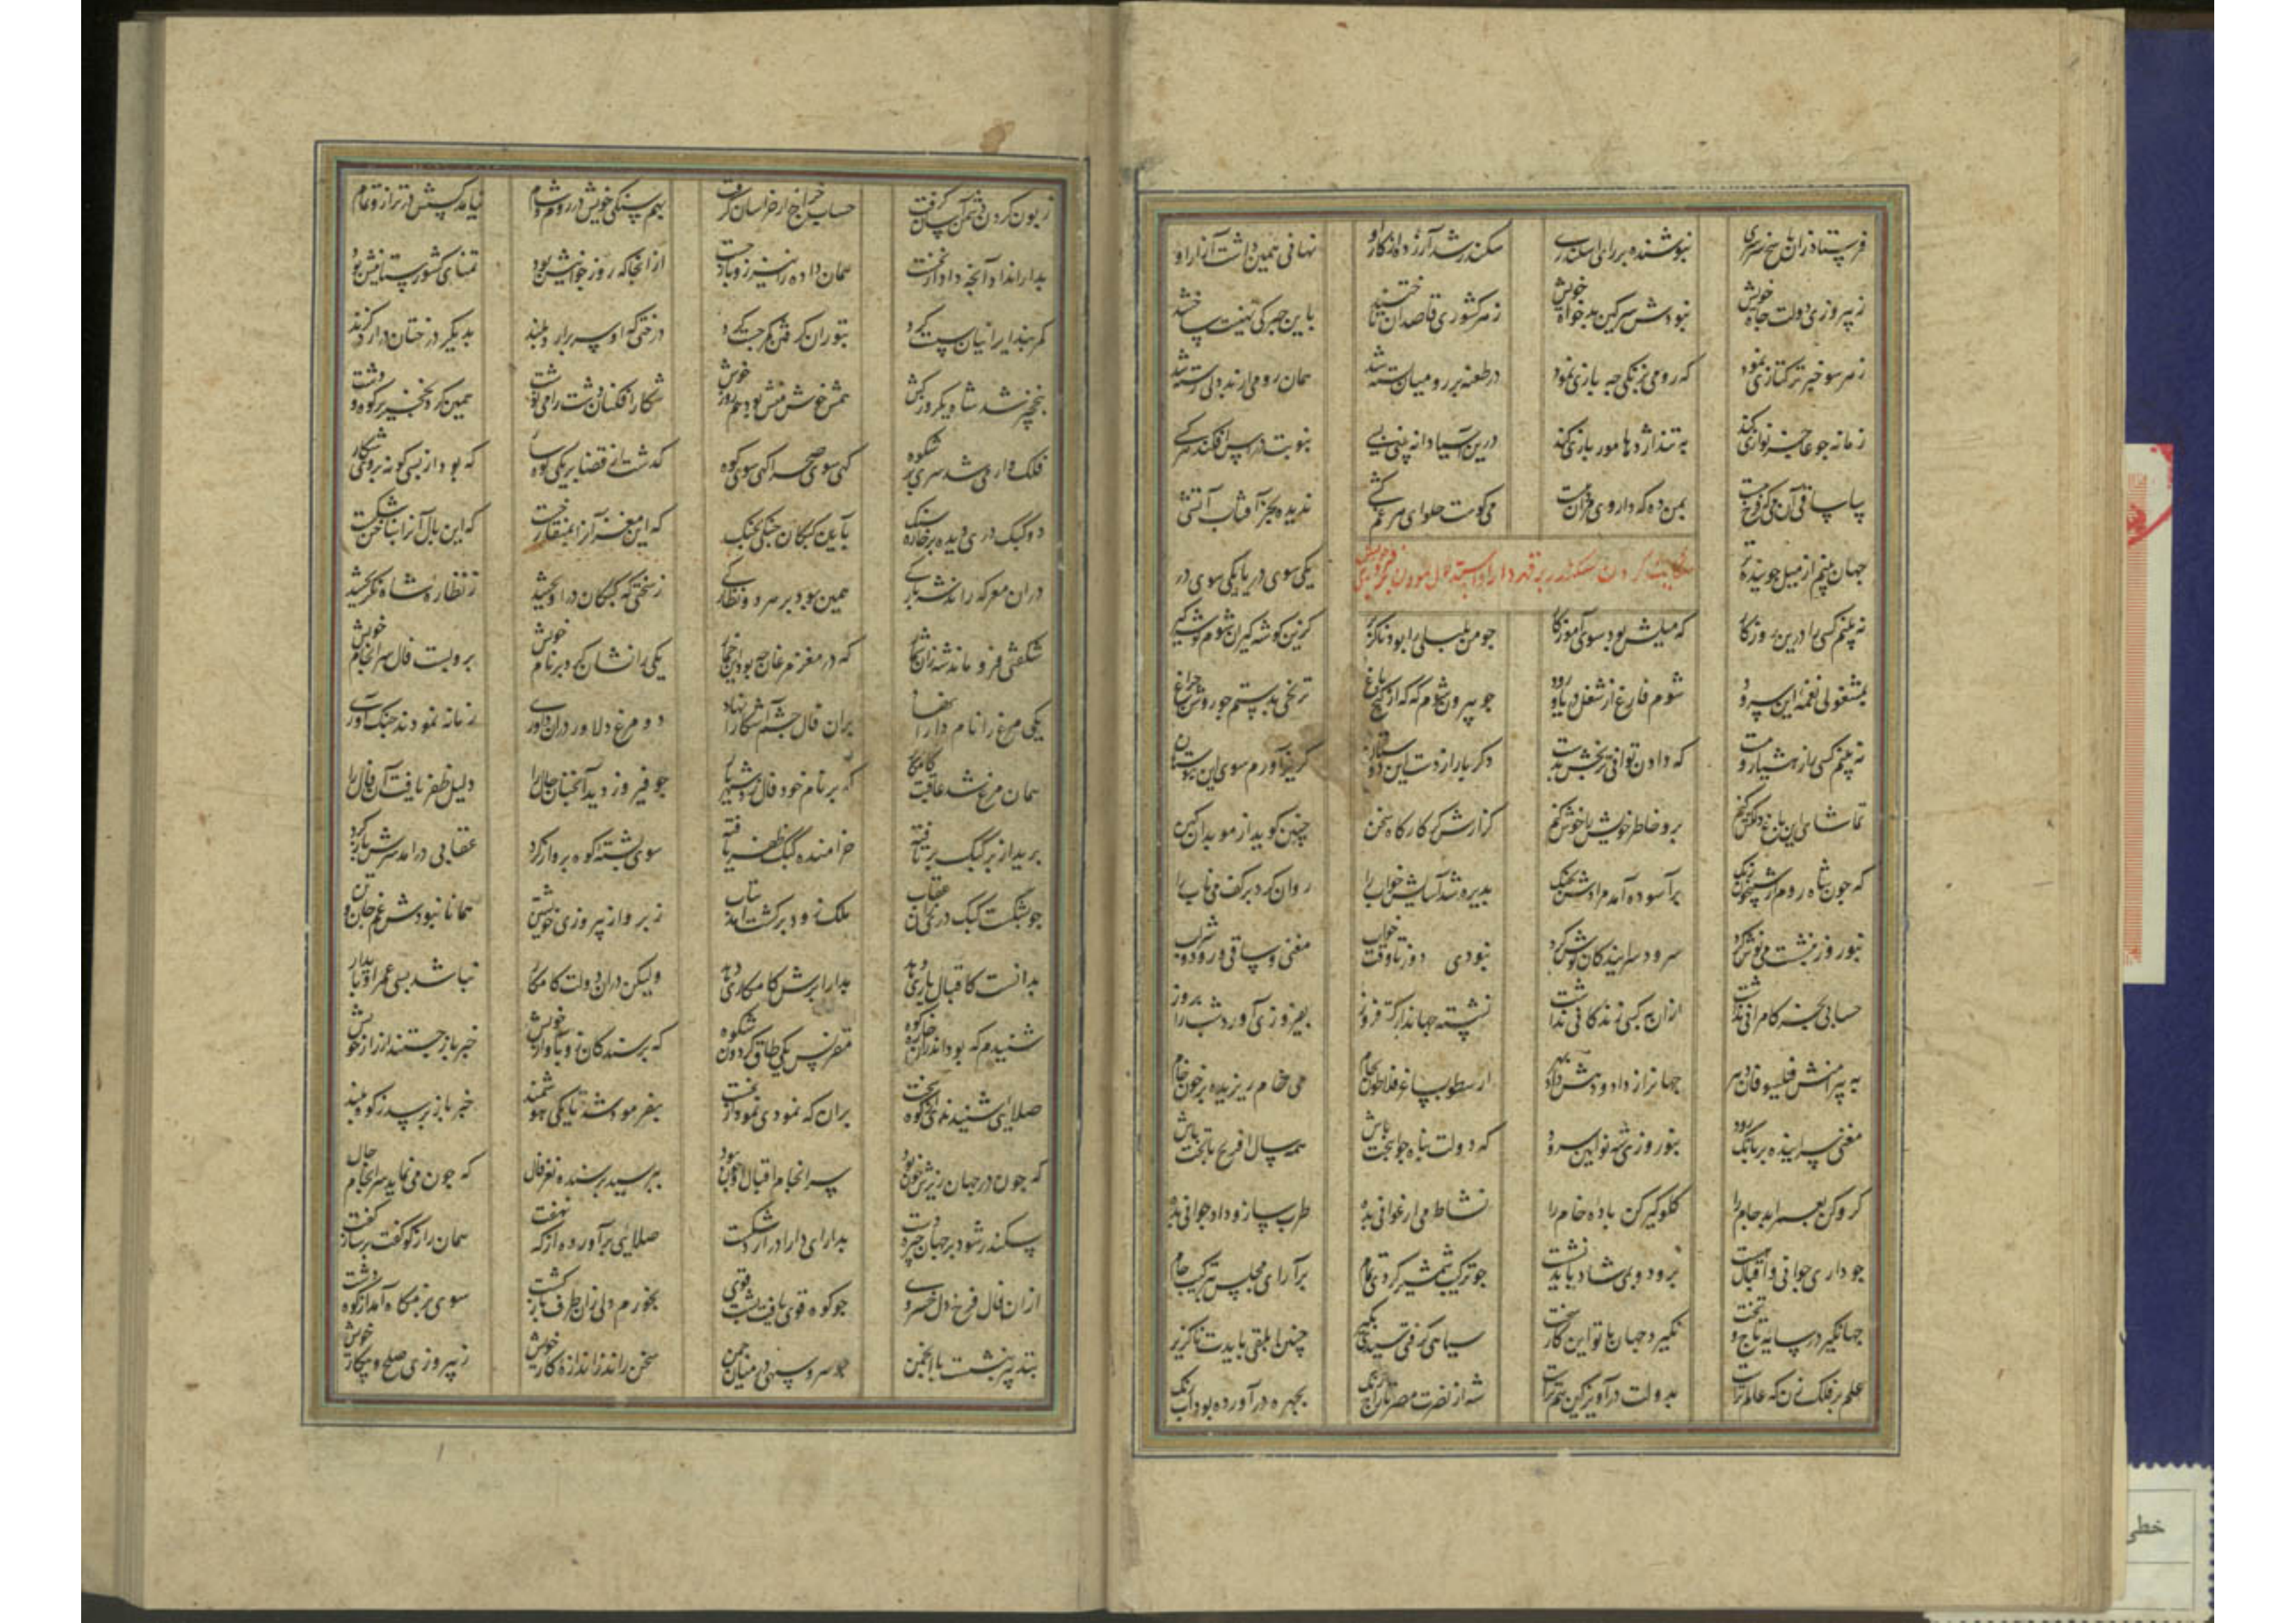 فرستاد زان پاسخ سرسری نیوشنده بر رای اسکندری سکندر شد آزرده از کار او نهانی همین داشت آزار او
ز پیروزی دولت جاه خویش نبودش سر کین بدخواه خویش ز هر کشوری قاصدان تاختند باین چیرکی تهنیت ساختند
ز هر سو خبر ترکتازی نمود که رومی بزنکی چه بازی نمود در طعنه بر رومیان بسته شد همان رومی از بددلی رسته شد
زمانه چو عاجز نوازی کند به تند اژدها مور بازی کند درین آسیا دانه بینی بسی بنوبت درآس افکند هر کسی
بیا ساقی آن می که فرخ پیست بمن ده که داروی مردان میست میی کوست حلوای هر غم کشی ندیده بجز آفتاب آتشی
جهان بینم از میل جوینده پر یکی سوی دریا یکی سوی در
نه بینم کسی را درین روزکار که میلش بود سوی آموزکار چو من بلبلی را بود ناکزیر کزین کوشه کیران شوم کوشه کیر
بمشغولی نغمه این سرود شوم فارغ از شغل دریا و رود چو بیرون شوم که که از کنج باغ ترنجی بدستم چو روشن چراغ
نه بینم کسی باز هشیار و مست که دادن توانی ترنجش بدست دکر باره از دست این دوستان کریز آورم سوی این بوستان
تماشای این باغ دلکش کنم بدو خاطر خویش را خوش کنم کزارش کر کارکاه سخن چنین کوید از موبدان کهن
که چون شاه روم از شبیخون زنک برآسوده آمد مرادش بچنک پذیره شد آسایش خواب را روان کرد بر کف می ناب را
بنوروز بنشست و می نوش کرد سرود سرایندکان کوش کرد نبودی ز شه دور تا وقت خواب مغنی و ساقی و رود و شراب
حسابی بجز کامرانی نداشت ازان به کسی زندکانی نداشت نشسته جهاندار کیتی فروز بفیروزی آورد شب را بروز
به پیرامنش فیلسوفان دهر جهانرا ز داد و دهش داده بهر ارسطو بساغر فلاطون بجام می خام ریزیده بر خون خام
مغنی سراینده بر بانک رود بنوروزی شه نوآیین سرود که دولت پناها جوانبخت باش همه سال با فرخ تاج و تخت باش
کرو کن بعمر ابد جام را کلوکیر کن باده خام را نشاط می ارغوانی بده طرب ساز و داد جوانی بده
چو داری جوانی و اقبال هست برود و بمی شاد باید نشست چو ترک شمشیر کردی تمام برآرای مجلس بترکیب جام
جهانکیر در سایه تاج و تخت نکیرد جهان با تو این کار سخت سیاهی کرفتی سپیدی بکیر چنین ابلقی بایدت ناکزیر
علم بر فلک زن که عالم تراست بدولت درآویز کین هم تراست شه از نصرت مصر و تاراج زنک بچهره درآورده بود آب و رنک
زبون کردن دشمن آسان کرفت حساب خراج از خراسان کرفت بهم سنکی خویش در روم و شام نیامد کسش در ترازو تمام
بدارا نداد آنچه داد از نخست همان داده را نیز زو باز جست از انجا که روز جوانیش بود تمنای کشورستانیش بود
کمر بند ایرانیان سست کرد بتوران کرفتن کمر چست کرد درختی که او سر برآرد بلند بدیکر درختان درآرد کزند
بنخچیر شد شاه یکروز کش هم خوش منش بود هم روز خوش شکارافکنان دشت را می نوشت همین کرد نخچیر بر کوه و دشت
فلک وار می شد سری پر شکوه کهی سوی صحرا کهی سوی کوه کذشت از قضا بر یکی کوهسار که بود از بسی کونه بر وی شکار
دو کبک دری دید بر خاره سنک بآیین کبکان جنکی بجنک که این مغز آنرا بمنقار خست که این بال آنرا بناخن شکست
دران معرکه راند شه بارکی همین بود بر هر دو نظارکی ز سختی که کبکان درآویختند ز نظاره شاه نکریختند
شکفتی فرو ماند شه زان شمار که در مغز مرغان چه بود این خمار یکی را نشان کرد بر نام خویش برو بست فال سرانجام خویش
یکی مرغ را نام دارا نهاد بران فال چشم آشکارا نهاد دو مرغ دلاور دران داوری زمانه نمودند جنک آوری
همان مرغ شد عاقبت کامکار که بر نام خود فال زد شهریار چو فیروز دید آنچنان حال را دلیل ظفر یافت آن فال را
خرامنده کبک ظفر یافته برید از بر کبک برتافته سوی پشته کوه پرواز کرد عقابی درآمد سرش باز کرد
چو بشکست کبک دری را عقاب ملک زود برکشت آمد شتاب ز پرواز پیروزی خویشتن همانا نبودش غم جان و تن
بدانست کاقبال یاری دهد بدارا برش کامکاری دهد ولیکن دران دولت کامکار نباشد بسی عمر او پایدار
شنیدم که بود اندران خاره کوه مقرنس یکی طاق کردون شکوه که پرسندکان زو بآواز خویش خبر باز جستند از راز خویش
صلائی شنیدندی از کوه سخت بران که نمودی نمودار بخت بفرمود شه تا یکی هوشمند خبر باز پرسد ز کوه بلند
که چون در جهان ریزش خون بود سرانجام اقبال او چون بود بپرسید پرسنده نغز فال که چون می نماید سرانجام حال
سکندر شود بر جهان چیره دست بدارای دارا درآرد شکست صدائی برآورد کوه از نهفت همان راز کو کفت بر ساز کفت
ازان فال فرخ دل خسروی چو کوه قوی یافت پشت قوی بخرم دلی زان طرف بازکشت سوی بزمکاه آمد از کوه و دشت
بتدبیر بنشست با انجمن چو سرو سهی در میان چمن سخن راند ز اندازه کار خویش ز پیروزی صلح و پیکار خویش
خطی